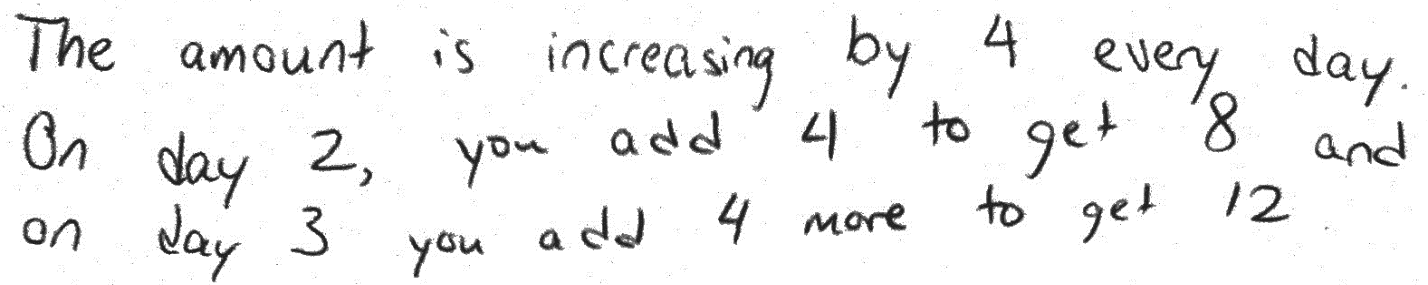 The amount is increasing by 4 every day.
On day 2, you add 4 to get 8 and
on day 3 you add 4 more to get 12